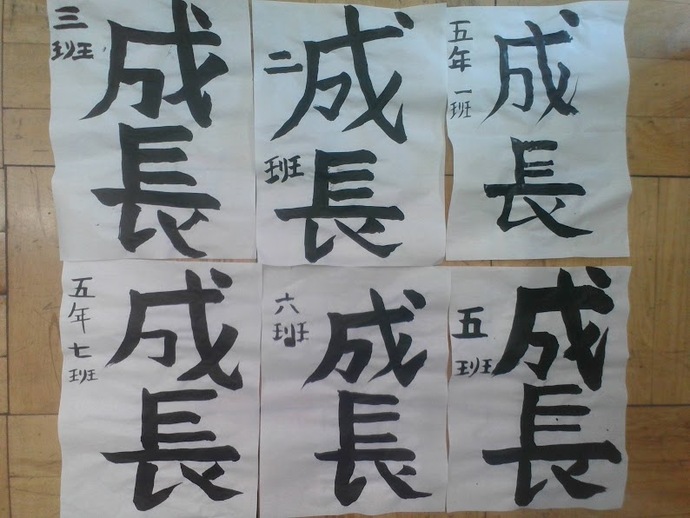 三班
成長
二班
成長
五年一班
成長
五年七班
成長
六班
成長
五班
成長